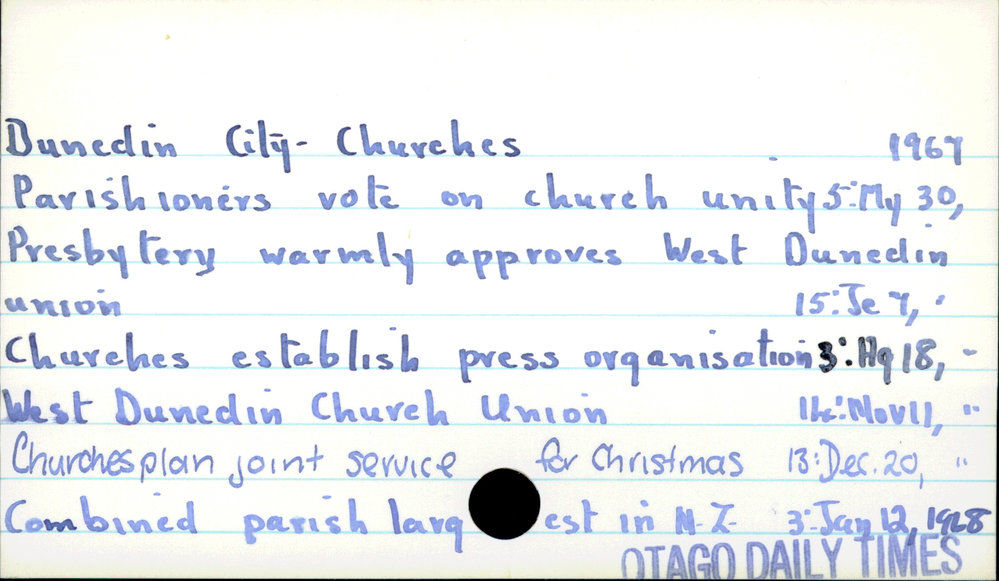 Dunedin City- Churches 1967
Parishioners vote on church unity 5:My 30,
Presbytery warmly approves West Dunedin
union 15:Je 7, "
Churches establish press organisation 3:Ag 18, "
West Dunedin Church Union 14:Nov 11, "
Churches plan joint service for Christmas 13:Dec. 20, "
Combined parish largest in N.Z. 3:Jan 12, 1968
OTAGO DAILY TIMES